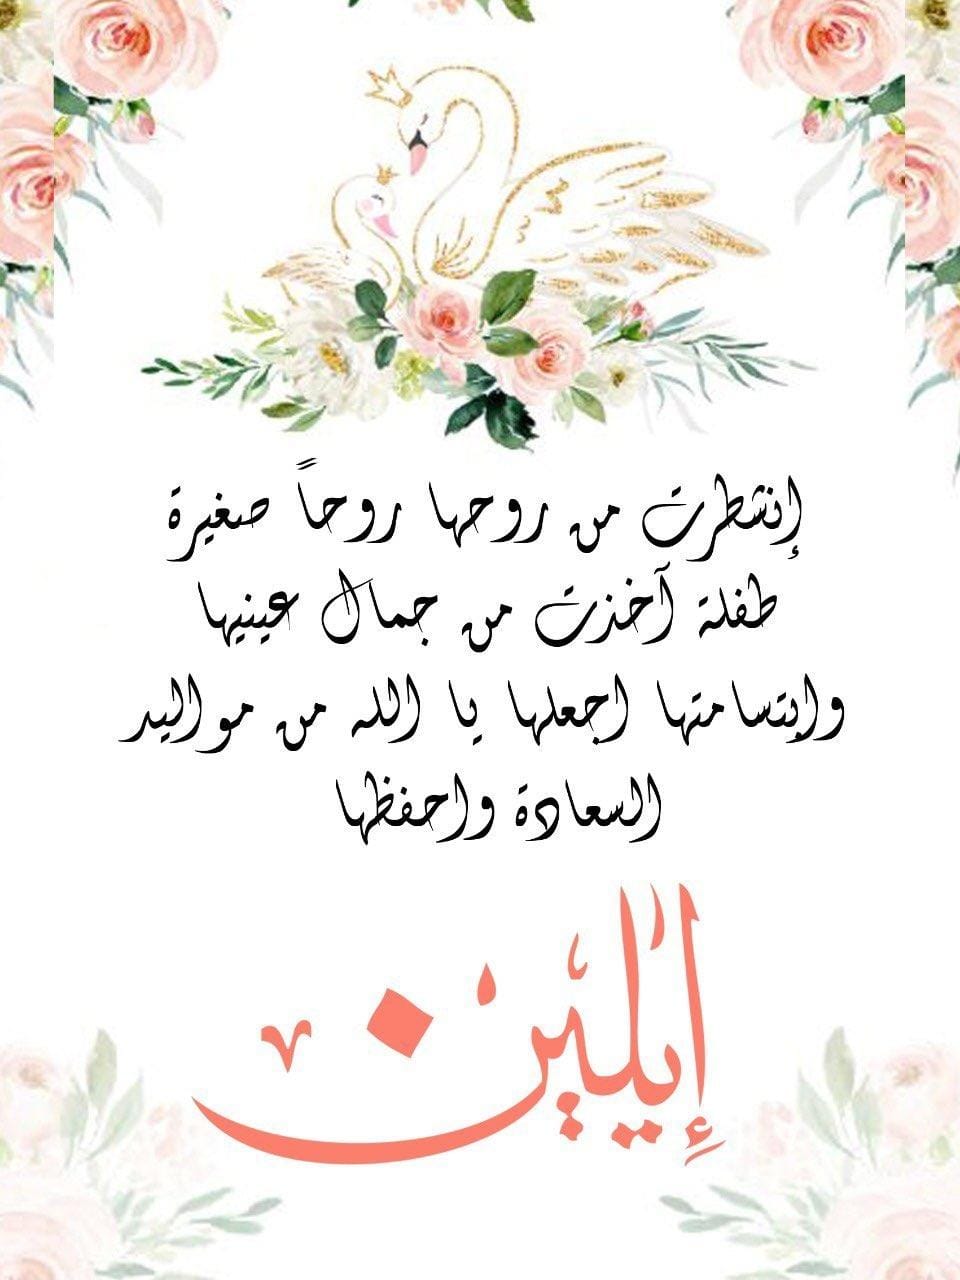 إنشطرت من روحها روحاً صغيرة
طفلة آخذت من جمال عينيها
وابتسامتها اجعلها يا الله من مواليد
السعادة واحفظها
إيلين